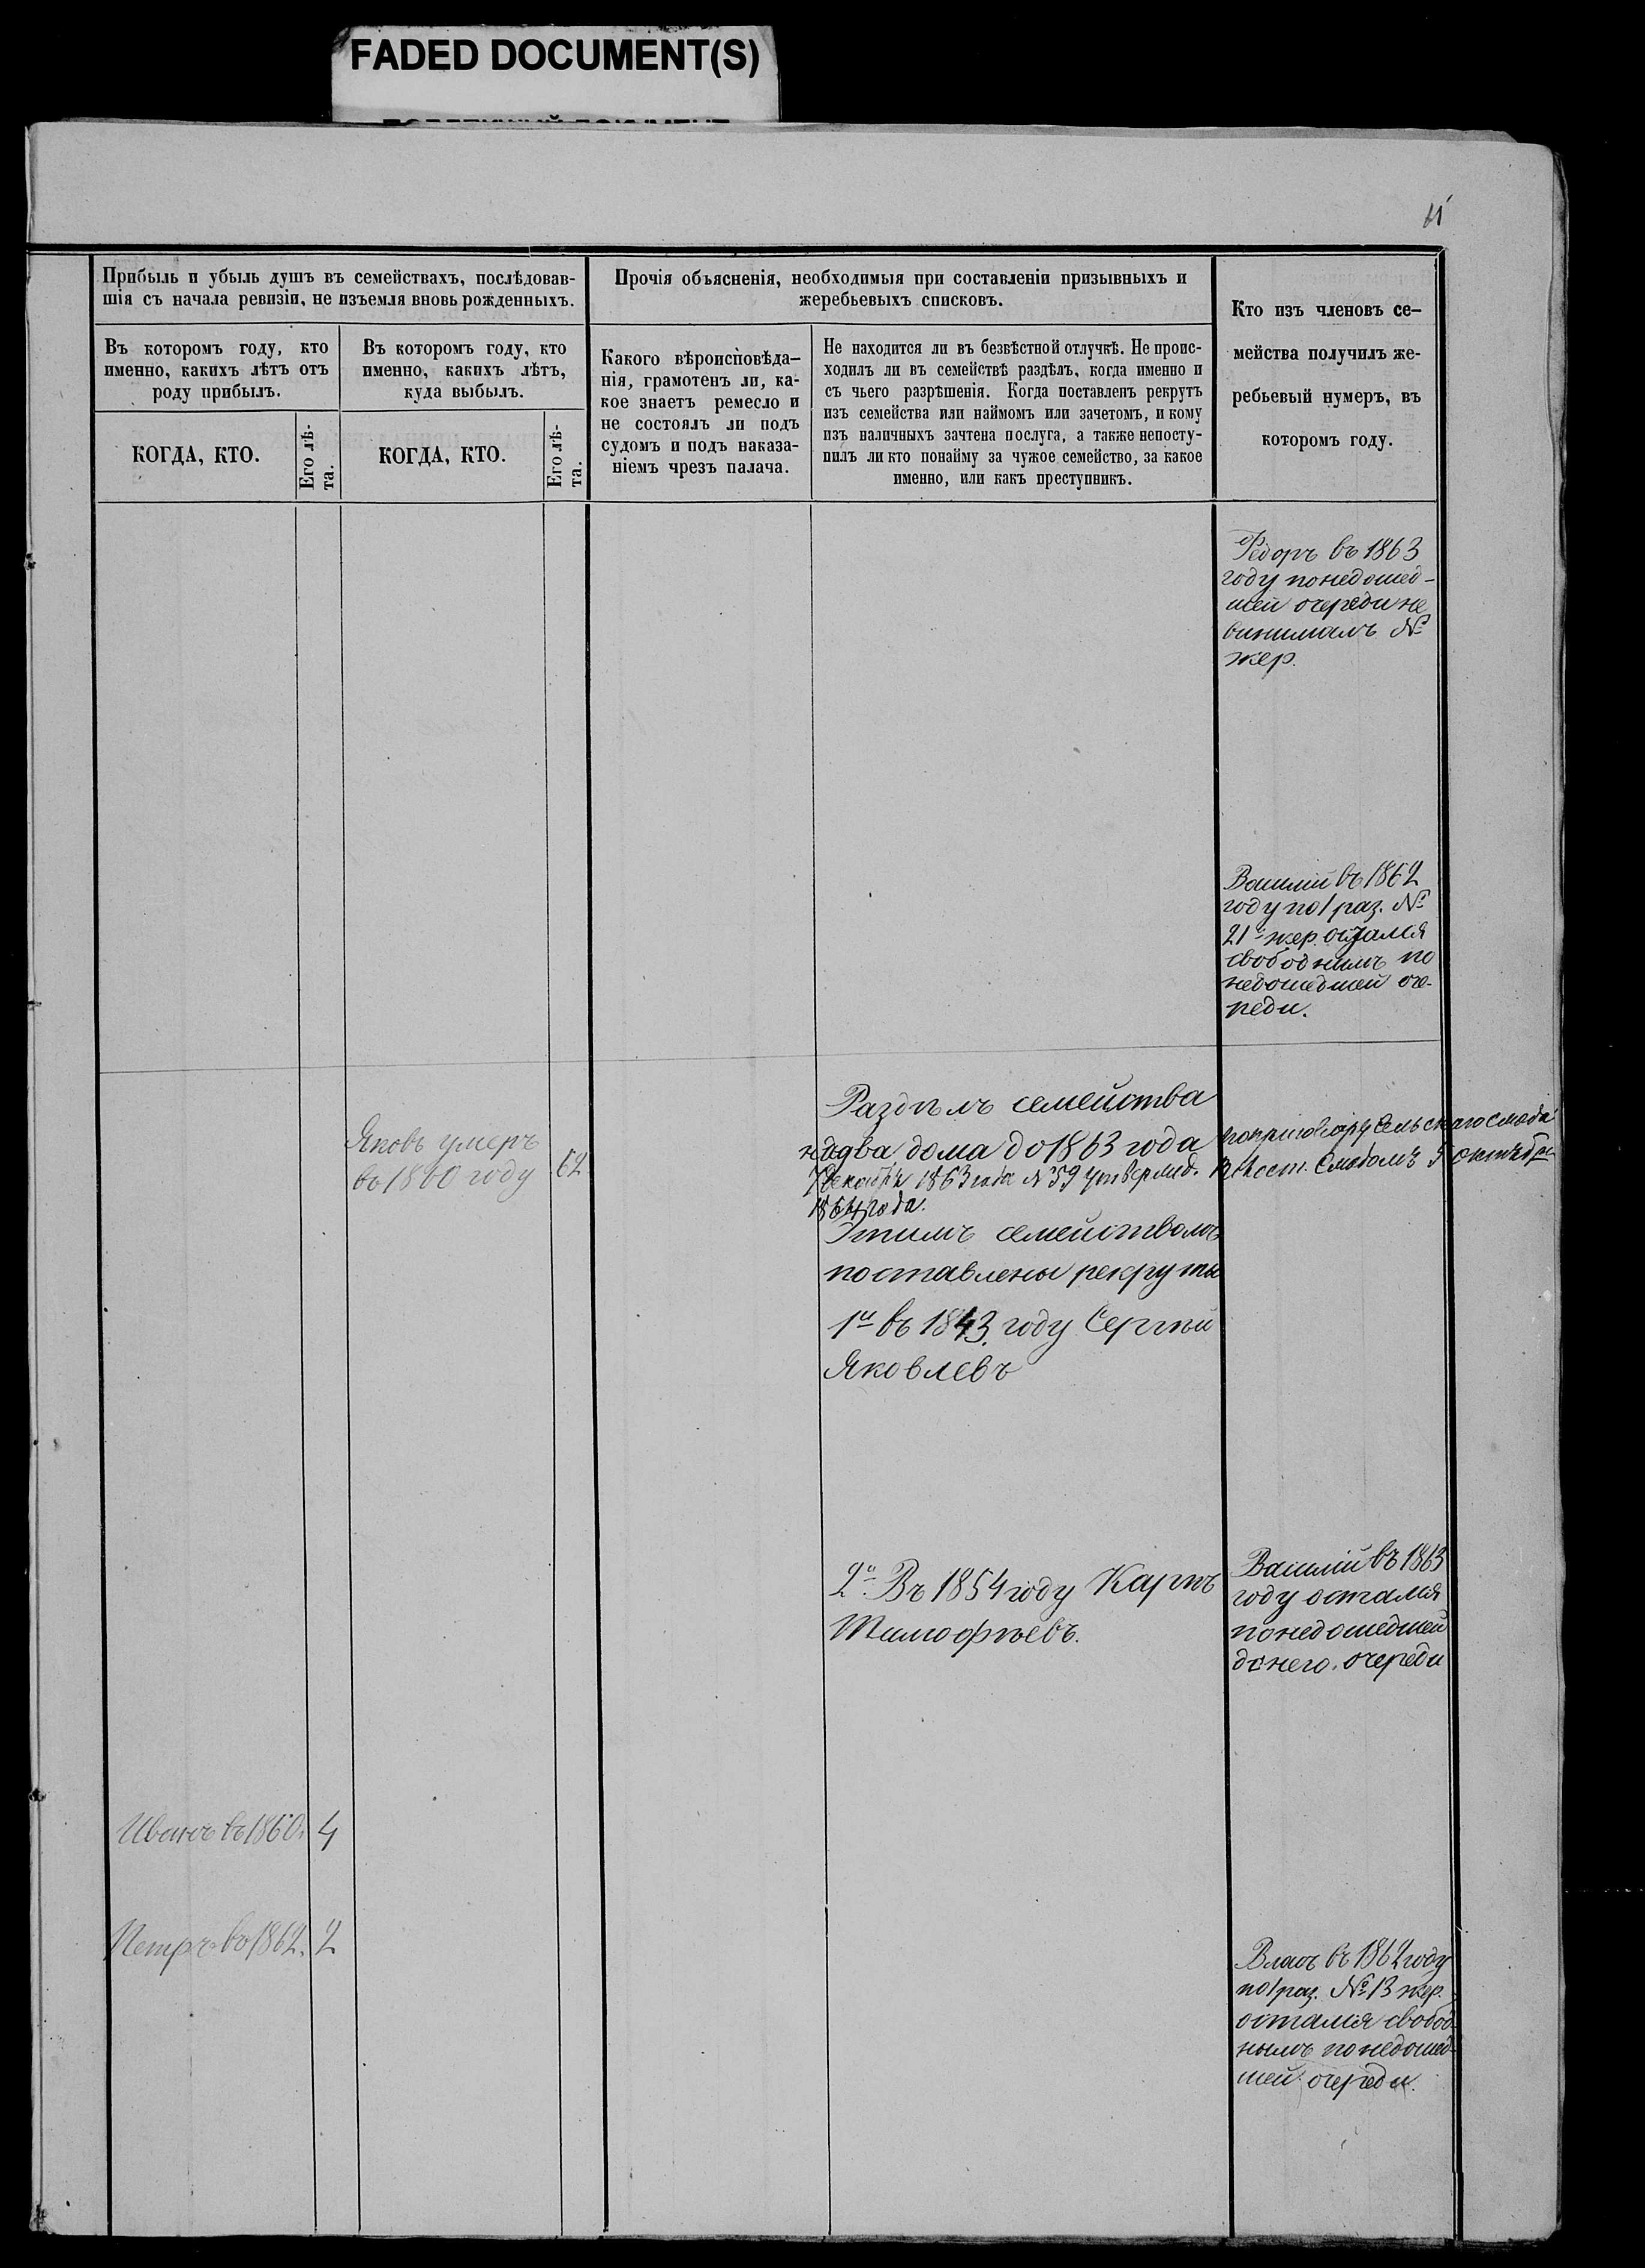 FADED DOCUMENT(S)
11
Прибыль и убыль душъ въ семействахъ, послѣдовав-
шія съ начала ревизіи, не изъемля вновь рожденныхъ.
Въ которомъ году, кто
именно, какихъ лѣтъ отъ
роду прибылъ.
КОГДА, КТО.
Его лѣ-
та.
Въ которомъ году, кто
именно, какихъ лѣтъ,
куда выбылъ.
КОГДА, КТО.
Его лѣ-
та.
Прочія объясненія, необходимыя при составленіи призывныхъ и
жеребьевыхъ списковъ.
Какого вѣроисповѣда-
нія, грамотенъ ли, ка-
кое знаетъ ремесло и
не состоялъ ли подъ
судомъ и подъ наказа-
ніемъ чрезъ палача.
Не находится ли въ безвѣстной отлучкѣ. Не проис-
ходилъ ли въ семействѣ раздѣлъ, когда именно и
съ чьего разрѣшенія. Когда поставленъ рекрутъ
изъ семейства или наймомъ или зачетомъ, и кому
изъ наличныхъ зачтена послуга, а также непосту-
пилъ ли кто понайму за чужое семейство, за какое
именно, или какъ преступникъ.
Кто изъ членовъ се-
мейства получилъ же-
ребьевый нумеръ, въ
которомъ году.
Федоръ въ 1863
году понедошед-
шей очереди не
винималъ №
жер.
Василій въ 1862
году по 1 раз. №
21й жер. остался
свободнымъ по
недошедшей оче-
реди.
Яковъ умеръ
въ 1860 году
62
Раздѣлъ семейства
на два дома до 1863 года по приговару Сельскаго схода
7 Декабря 1863 года № 59 утвержд. Волост. Сходомъ 5 октября
1864 года.
Этимъ семействомъ
поставлены рекруты
1й въ 1843 году Сергѣй
Яковлевъ
2й Въ 1854 году Карпъ
Тимофѣевъ.
Василій въ 1863
году остался
понедошедшей
до него очереди
Иванъ въ 1860. 4
Петръ въ 1862. 2
Власъ въ 1862 году
по 1 раз. № 13 жер.
остался свобод-
нымъ понедошед-
шей очереди.